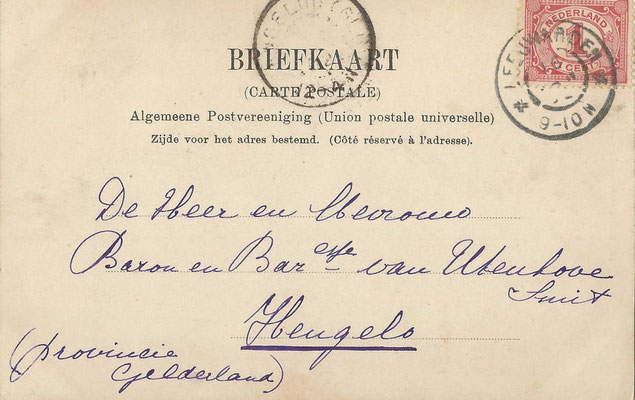 BRIEFKAART
(CARTE POSTALE)
Algemeene Postvereeniging (Union postale universelle)
Zijde voor het adres bestemd. (Côté réservé à l'adresse).
NEDERLAND
1 CENT
LEEUWARDEN
9-10N
De Heer en Mevrouw
Baron en Baresse van Utenhove
Smit
Hengelo
(provincie
Gelderland)